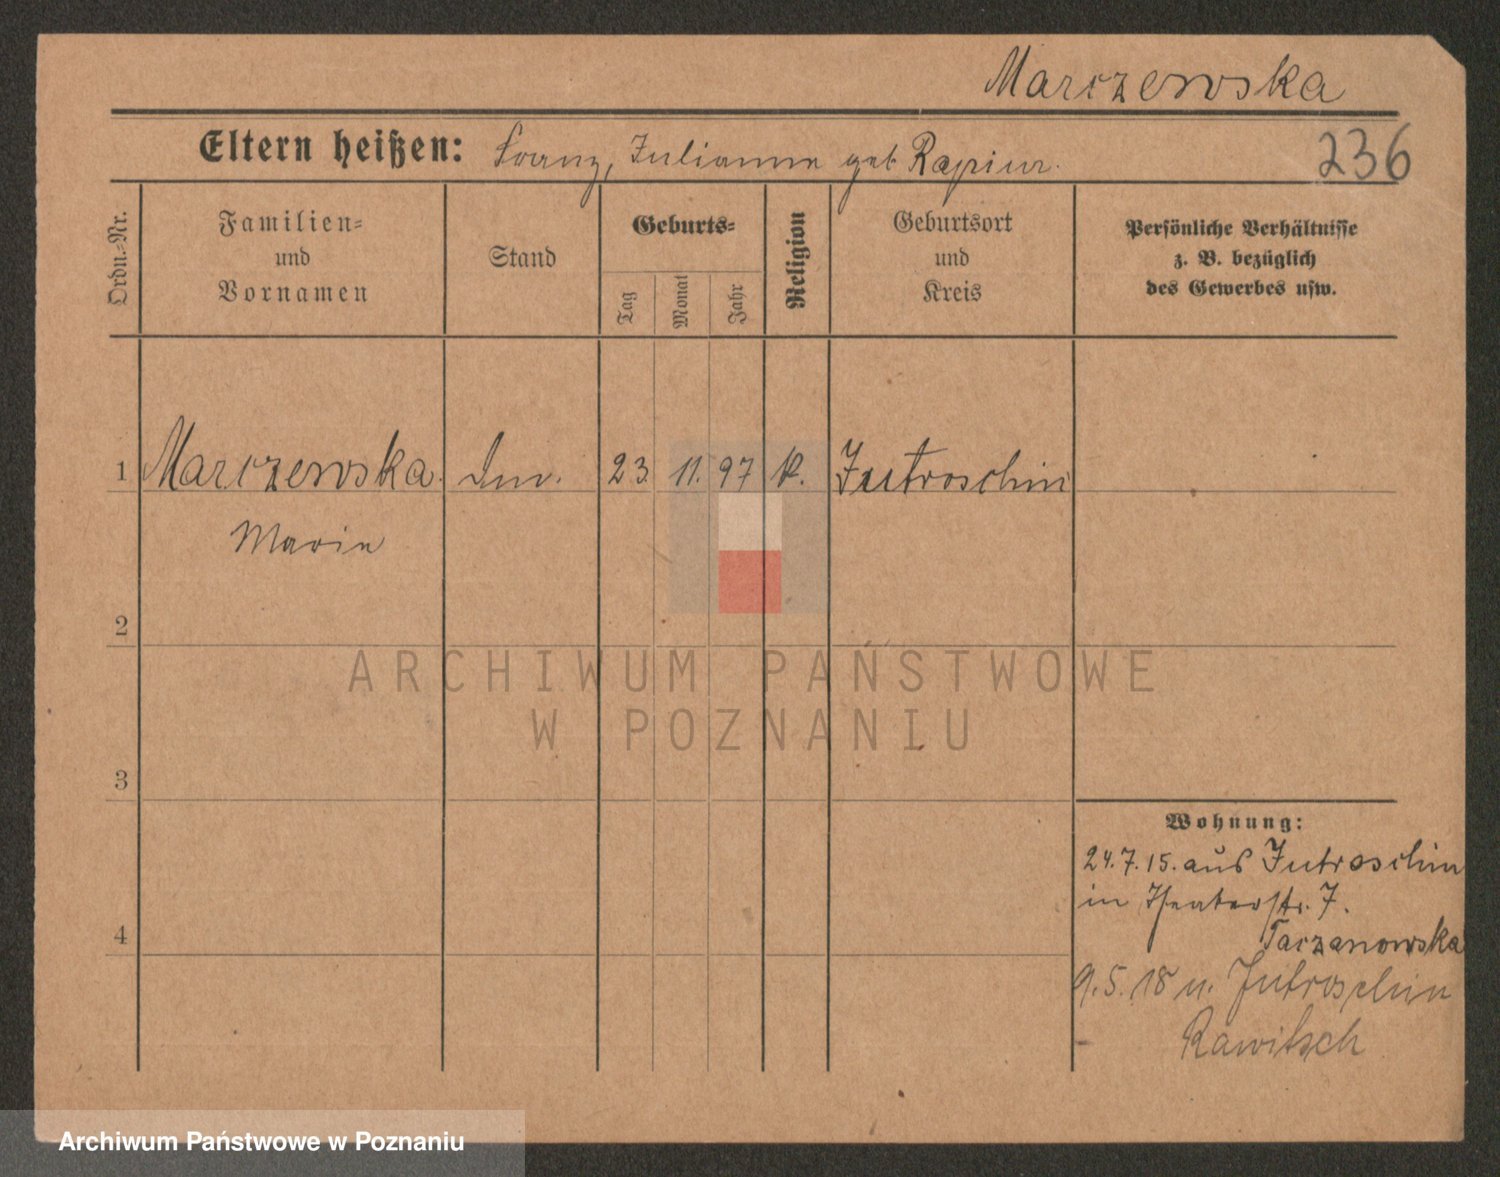 Marczewska
Eltern heißen: Franz, Julianne geb. Rapiur.
236
Ordn.-Nr.
Familien-
und
Vornamen
Stand
Geburts-
Tag
Monat
Jahr
Religion
Geburtsort
und
Kreis
Persönliche Verhältnisse
z. B. bezüglich
des Gewerbes usw.
1 Marczewska. 23. 11. 97 K. Jutroschin
Marie
2
3
4
Wohnung:
24.7.15. aus Jutroschin
in Theaterstr. 7.
Taczanowska
9.5.18 n. Jutroschin
Rawitsch
ARCHIWUM PAŃSTWOWE
W POZNANIU
Archiwum Państwowe w Poznaniu